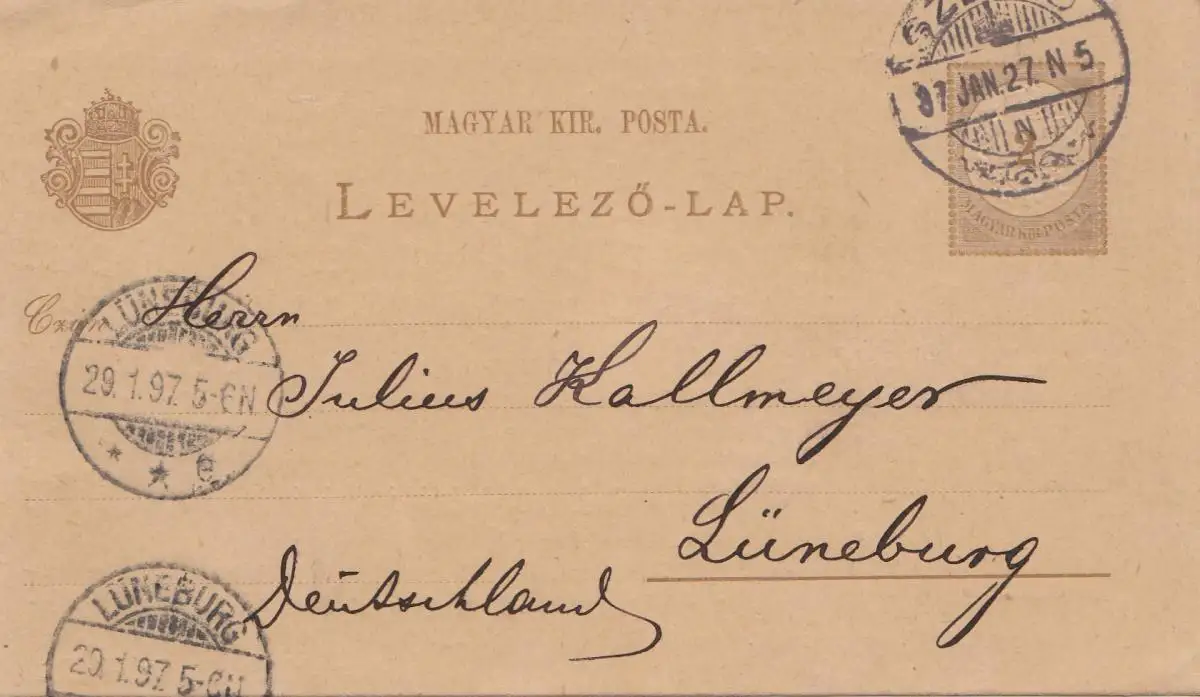 97 JAN. 27. N 5
N
MAGYAR KIR. POSTA.
2
LEVELEZŐ-LAP.
MAGYAR KIR. POSTA
Czim
Herrn
LÜNEBURG
29.1.97. 5-6N
* * e
Julius Kallmeyer
Lüneburg
Deutschland
LÜNEBURG
29.1.97. 5-6N